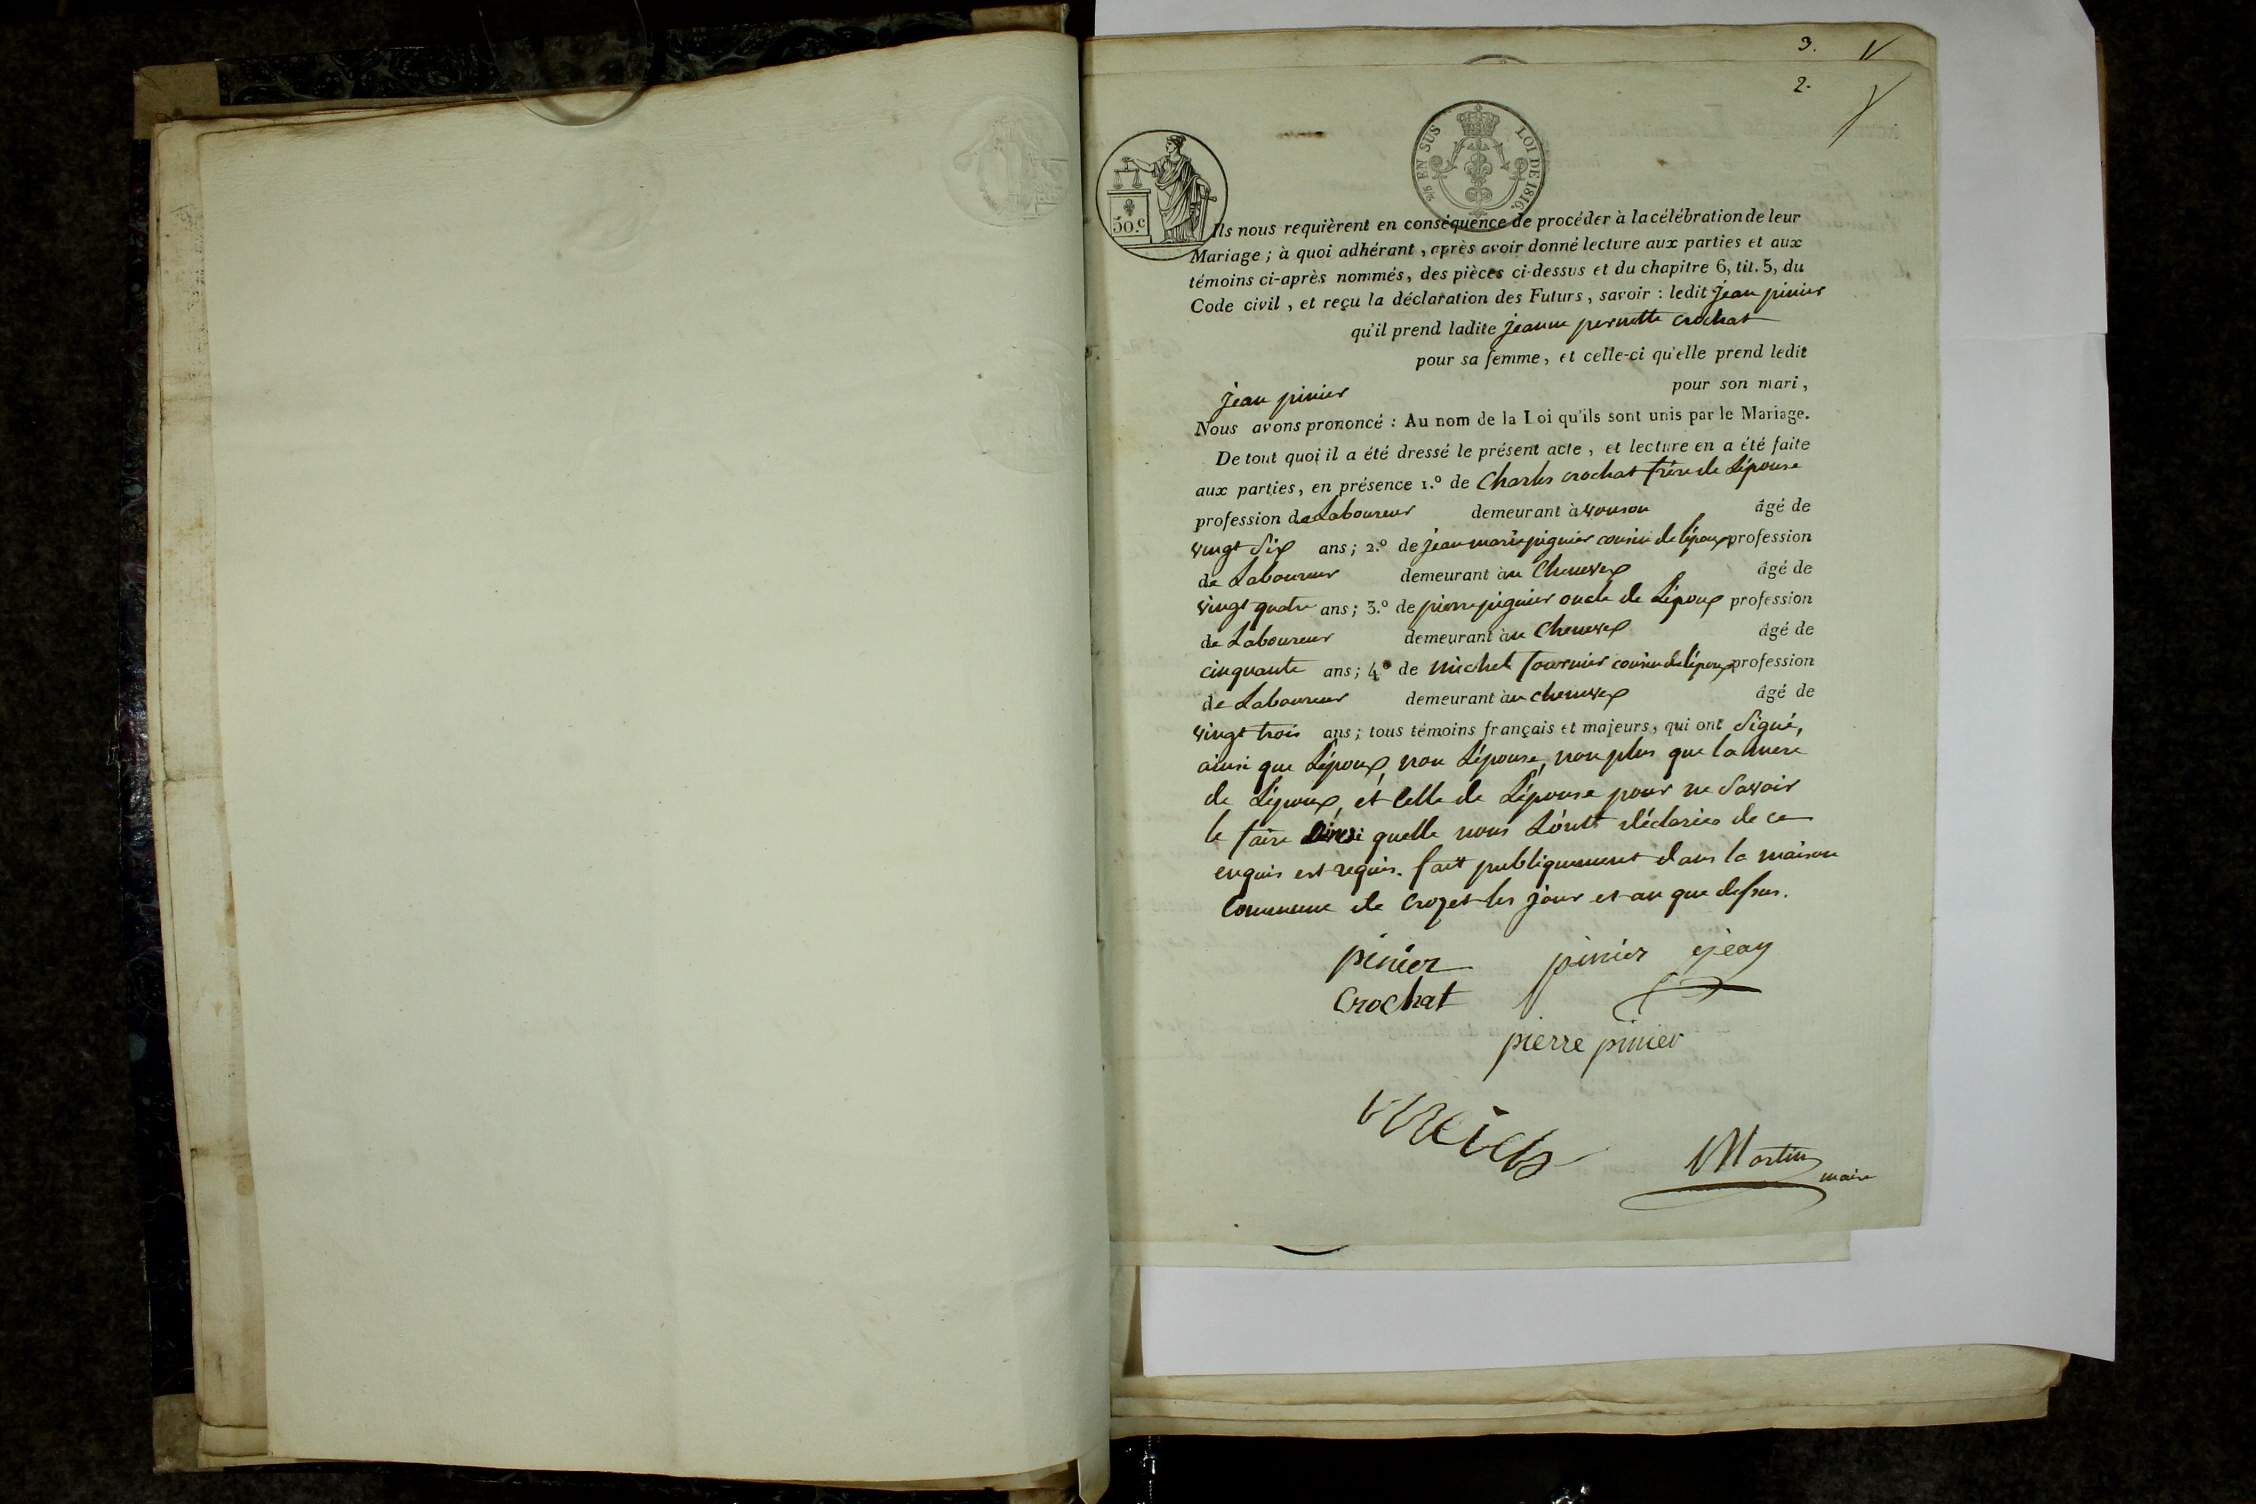 3.
2.
2/5 EN SUS LOI DE 1816.
50.c
Ils nous requièrent en conséquence de procéder à la célébration de leur
Mariage ; à quoi adhérant , après avoir donné lecture aux parties et aux
témoins ci-après nommés, des pièces ci-dessus et du chapitre 6, tit. 5, du
Code civil , et reçu la déclaration des Futurs , savoir : ledit jean pinier
qu'il prend ladite jeanne pernette crochat
pour sa femme , et celle-ci qu'elle prend ledit
jean pinier pour son mari ,
Nous avons prononcé : Au nom de la Loi qu'ils sont unis par le Mariage.
De tout quoi il a été dressé le présent acte , et lecture en a été faite
aux parties, en présence 1.º de Charles crochat frère de Lépouse
profession de Laboureur demeurant à vouson âgé de
vingt Six ans ; 2.º de jean marie pignier cousin de lépoux profession
de Laboureur demeurant au Chenevex âgé de
vingt quatre ans ; 3.º de pierre pignier oncle de Lépoux profession
de Laboureur demeurant au Chenevex âgé de
cinquante ans ; 4.º de michel fournier cousin de lépoux profession
de Laboureur demeurant au chenevex âgé de
vingt trois ans ; tous témoins français et majeurs, qui ont Signé,
ainsi que Lépoux, non Lépouse, non plus que la mere
de Lépoux, et Celle de Lépouse pour ne Savoir
le faire ainsi quelle nous Lont déclarées de ce
enquis est requis. fait publiquement dans la maison
Commune de Crozet les jour et an que dessus.
pinier pinier jean
crochat
pierre pinier
Martin
maire